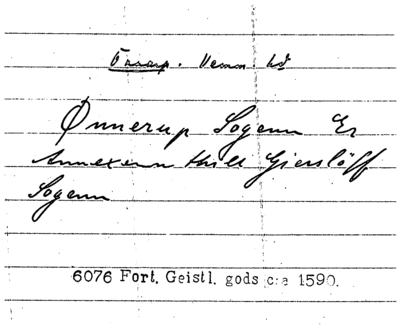 Tværup. Venn. hd
Ønnerup Sogenn Er
Annexenn thill Giersløff
Sogenn
6076 Fort. Geistl. gods c:a 1590.